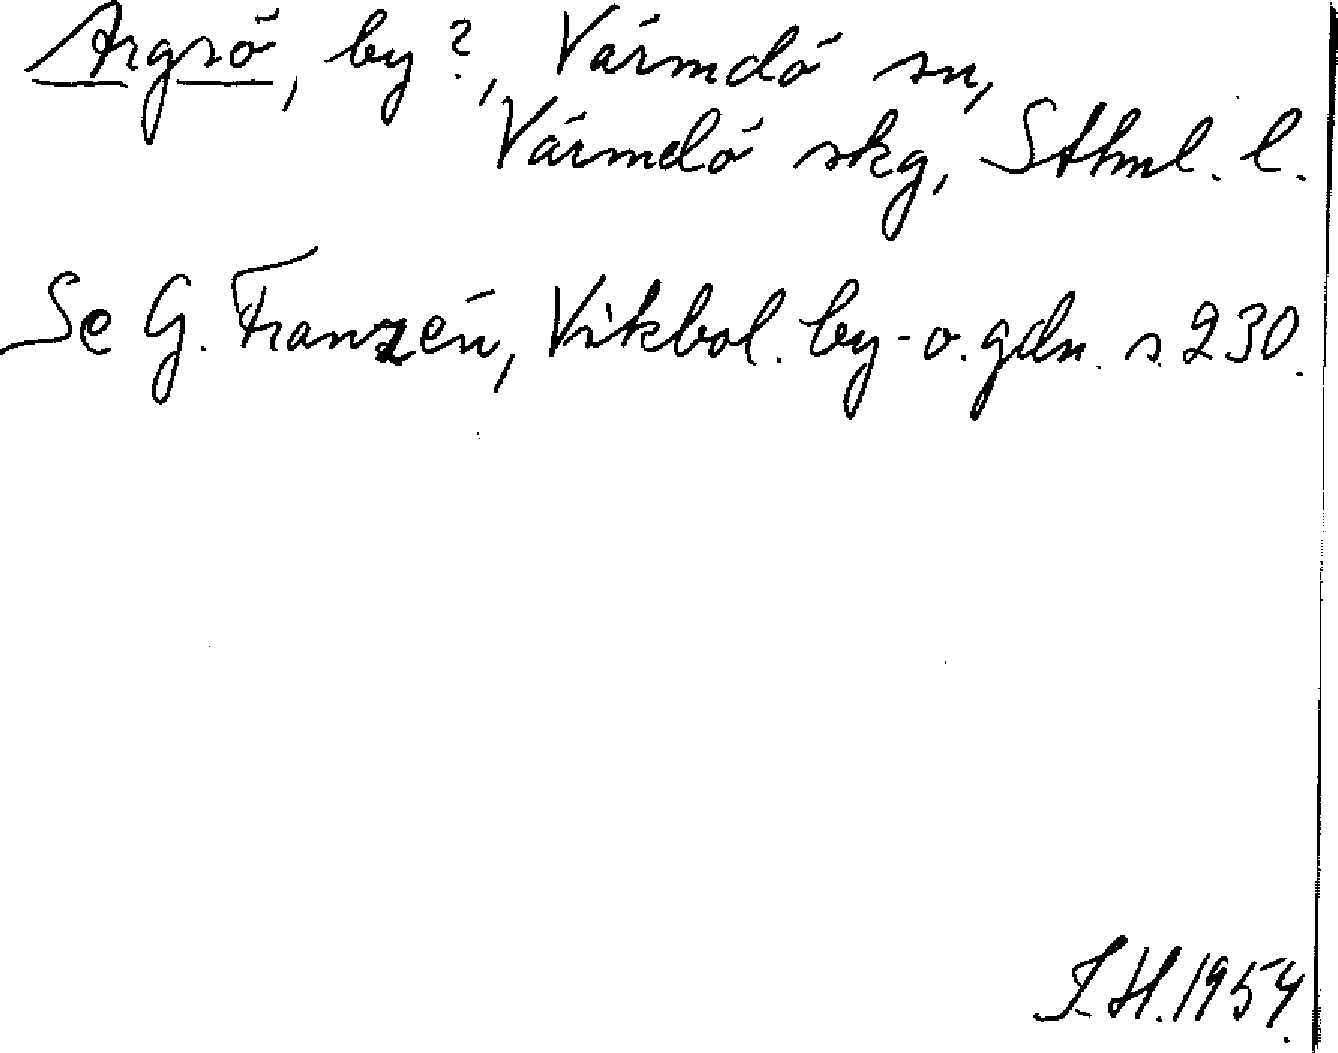 Argsö, by?, Värmdö sn,
Värmdö skg, Sthml. l.
Se G. Franzén, Vikbol. by- o. gdn. s. 230.
I.H. 1954.